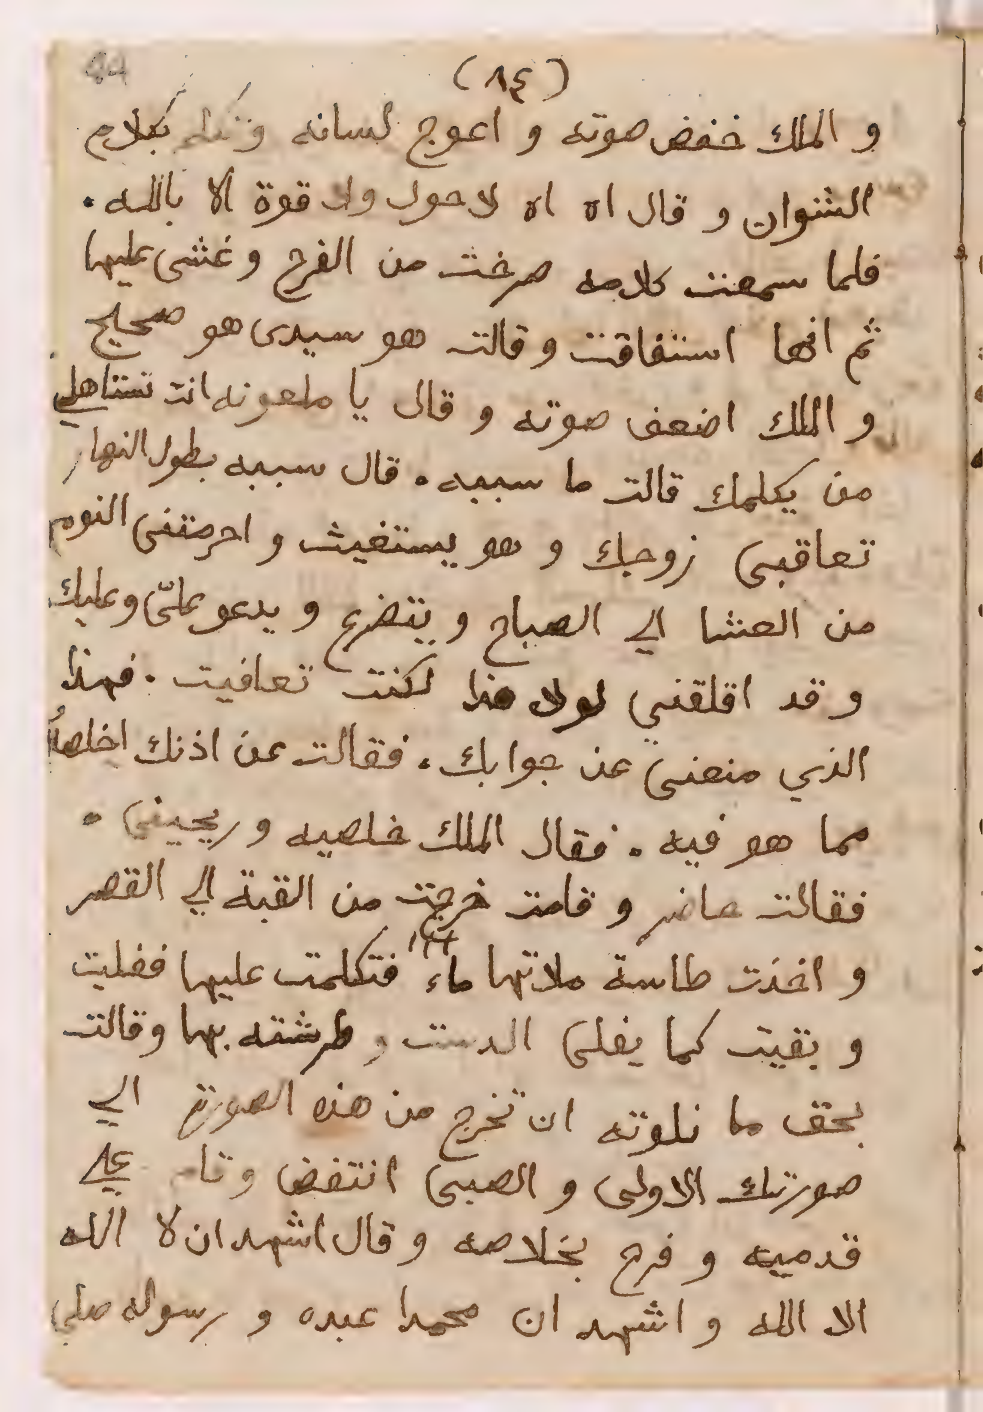 44
(٨٤)
و الملك خفض صوته و اعوج لسانه وتكلم بكلام
الشوان و قال اه اه لا حول ولا قوة الا بالله .
فلما سمعت كلامه صرخت من الفرح و غشى عليها
ثم انها استفاقت و قالت هو سيدى هو صحيح
و الملك اضعف صوته و قال يا ملعونه انت تستاهلي
من يكلمك قالت ما سببه . قال سببه بطول النهار
تعاقبى زوجك و هو يستغيث و احرمتنى النوم
من العشا الي الصباح و يتضرع و يدعو علىّ وعليك
و قد اقلقنى لولا هذا لكنت تعافيت . فهذا
الذي منعنى عن جوابك . فقالت عن اذنك اخلصهُ
مما هو فيه . فقال الملك خلصيه و ريحينى .
فقالت حاضر و قامت خرجت من القبة الي القصر
و اخذت طاسة ملاتها ماء فتكلمت عليها فغليت
و بقيت كما يغلى الدست و طرشته بها وقالت
بحق ما تلوته ان تخرج من هذه الصورة الي
صورتك الاولى و الصبى انتفض وقام على
قدميه و فرح بخلاصه و قال اشهد ان لا اله
الا الله و اشهد ان محمدا عبده و رسوله صلى